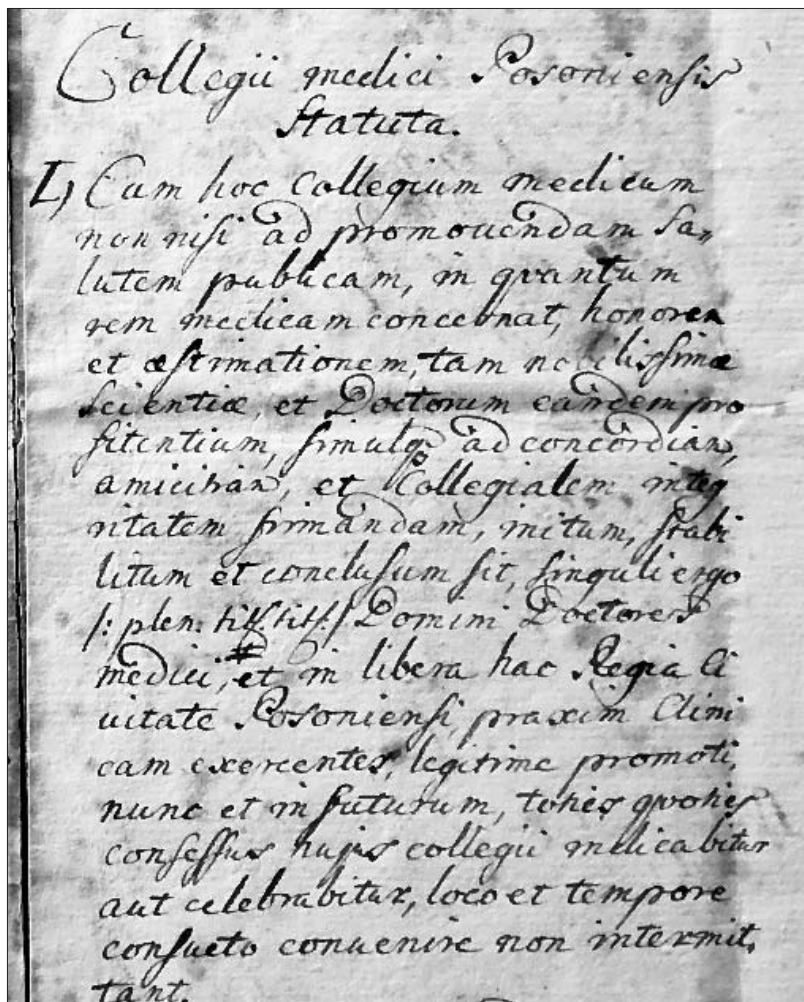 Collegii medici Posoniensis
Statuta.
I., Cum hoc Collegium medicum
non nisi ad promovendam sa-
lutem publicam, in qvantum
rem medicam concernat, honorem
et æstimationem, tam nobilissimæ
scientiæ, et Doctorum eandem pro
fitentium, simulq, ad concordian,
amicitian, et Collegialem integ
ritatem firmandam, initum, stabi
litum et conclusum sit, singuli ergo
/: plen: titt. titt: / Domini Doctores
medici, # et in libera hac Regia Ci
vitate Posoniensi, praxim Clini
cam exercentes, legitime promoti,
nunc et in futurum, toties qvoties
consessus hujus collegii indicabitur
aut celebrabitur, loco et tempore
consueto convenire non intermit,
tant.